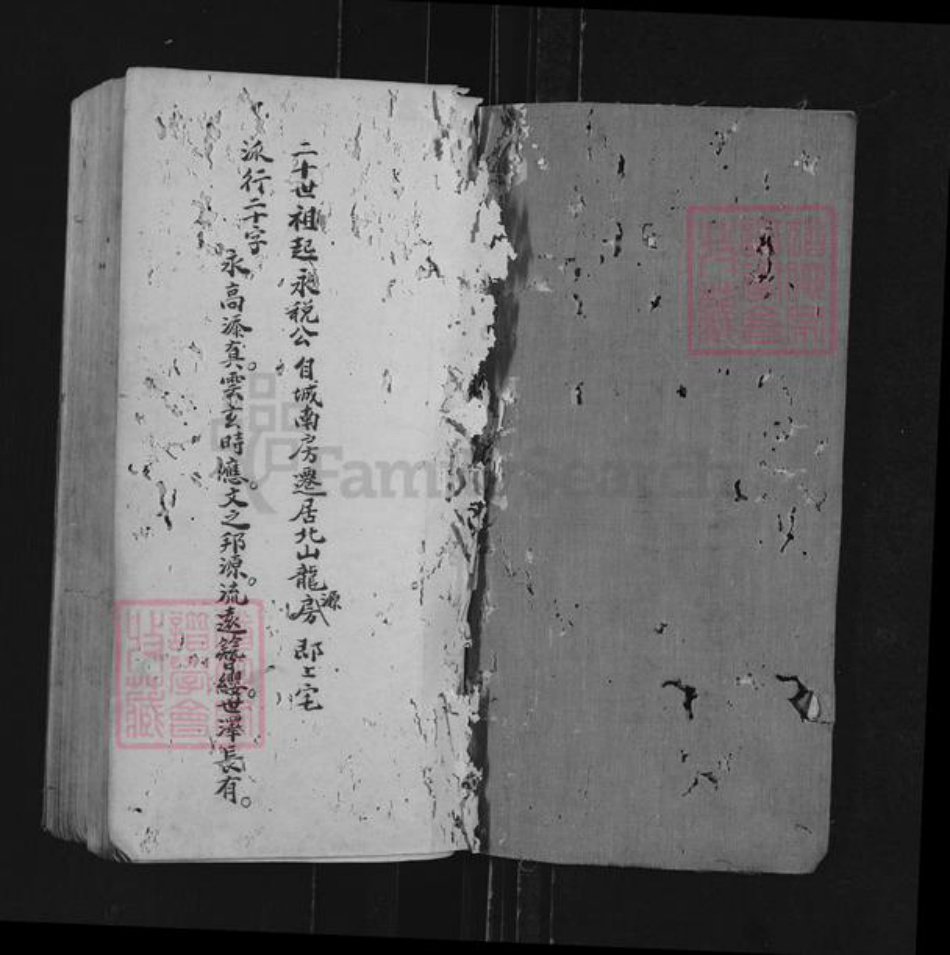 二十世祖起永税公自城南房遷居北山龍源房 郎士宅
派行二十字
永高添真。雲玄時應。文之邦源。流遠簪纓。世澤長有。
FamilySearch